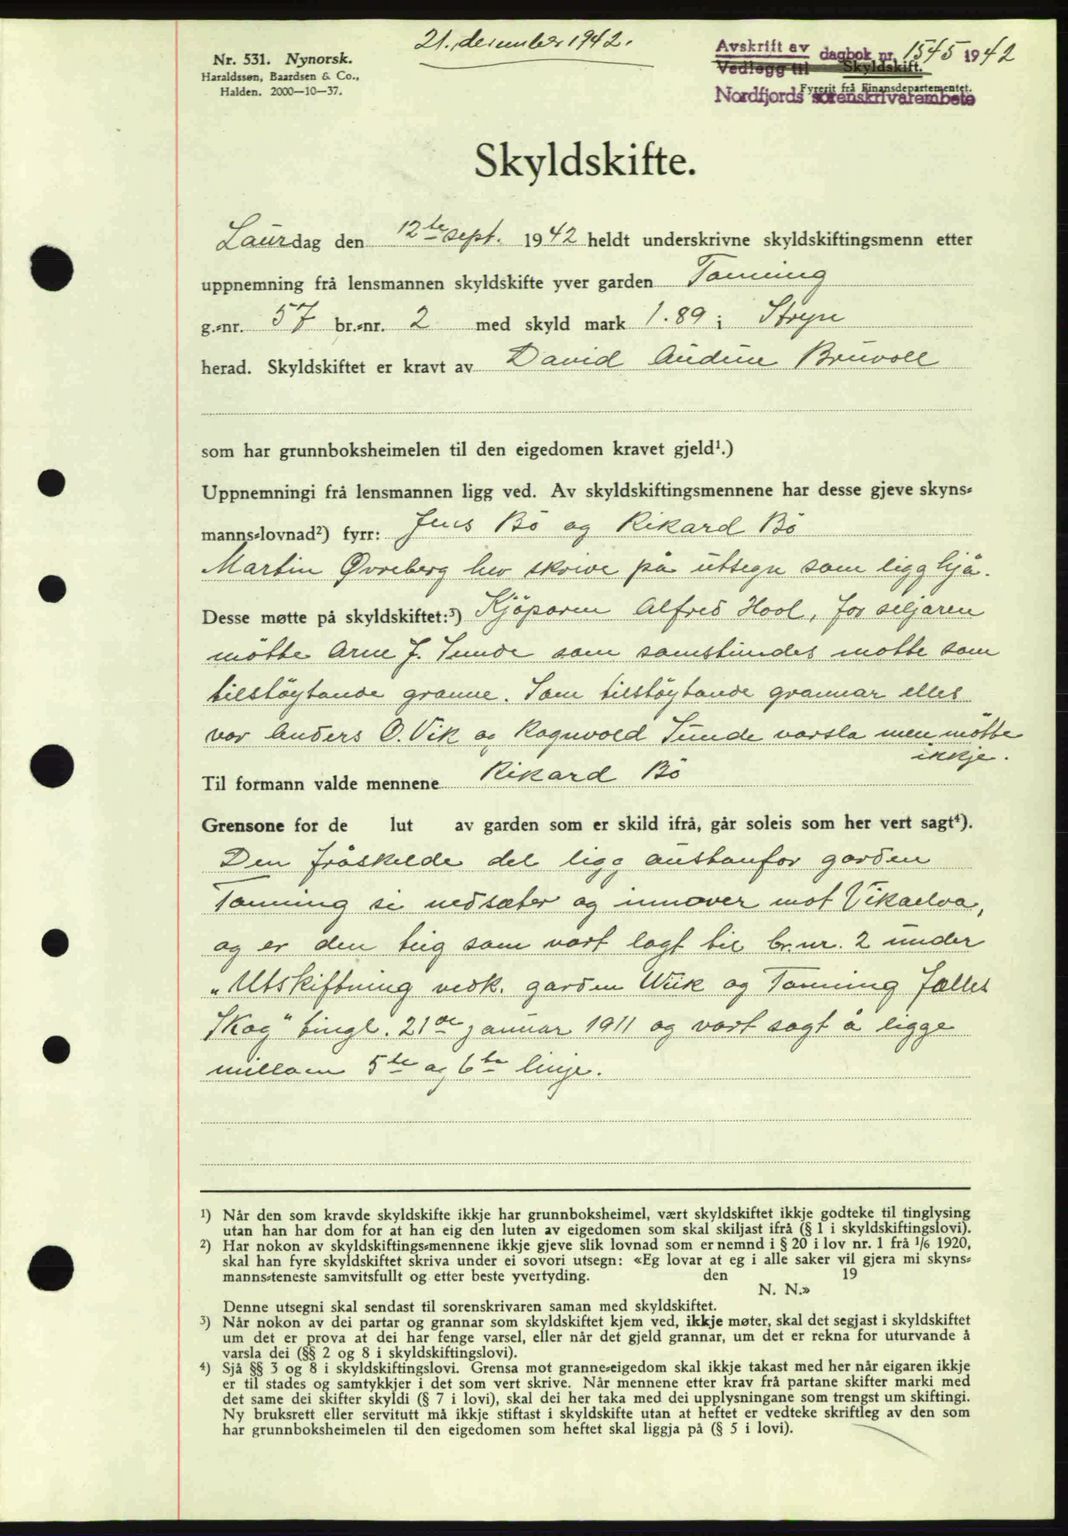 21. desember 1942.
Nr. 531. Nynorsk.
Haraldssøn, Baardsen & Co.,
Halden. 2000—10—37.
Avskrift av dagbok nr. 1545 1942
Vedlegg til Skyldskift.
Fyrerit frå Finansdepartementet.
Nordfjords sorenskrivarembete
Skyldskifte.
Laurdag den 12te sept. 1942 heldt underskrivne skyldskiftingsmenn etter
uppnemning frå lensmannen skyldskifte yver garden Tonning
g.-nr. 57 br.-nr. 2 med skyld mark 1.89 i Stryn
herad. Skyldskiftet er kravt av David Andline Bruvoll
som har grunnboksheimelen til den eigedomen kravet gjeld¹.)
Uppnemningi frå lensmannen ligg ved. Av skyldskiftingsmennene har desse gjeve skyns-
manns-lovnad²) fyrr: Jens Bö og Rikard Bö
Martin Øvreberg hev skrive på utsegn som ligg hjå.
Desse møtte på skyldskiftet:³) Kjöparen Alfred Hool, for seljaren
mötte Arne J. Sunde som samstundes mötte som
tilstöytande granne. Som tilstöytande grannar elles
var Anders O. Vik og Ragnvald Sunde varsla men mötte
ikkje.
Til formann valde mennene Rikard Bö
Grensone for de lut av garden som er skild ifrå, går soleis som her vert sagt⁴).
Den fråskilde del ligg austanfor garden
Tonning si nedsæter og innover mot Vikaelva,
og er den teig som vart lagt til br.nr. 2 under
„Utskiftning vedk. garden Wiik og Tonning fælles
Skog" tingl. 21de januar 1911 og vart sagt å ligge
millom 5te og 6te linje.
¹) Når den som kravde skyldskifte ikkje har grunnboksheimel, vært skyldskiftet ikkje godteke til tinglysing
utan han har dom for at han eig den luten av eigedomen som skal skiljast ifrå (§ 1 i skyldskiftingslovi).
²) Har nokon av skyldskiftings-mennene ikkje gjeve slik lovnad som er nemnd i § 20 i lov nr. 1 frå ¹/₆ 1920,
skal han fyre skyldskiftet skriva under ei sovori utsegn: «Eg lovar at eg i alle saker vil gjera mi skyns-
manns-teneste samvitsfullt og etter beste yvertyding. den 19
N. N.»
Denne utsegni skal sendast til sorenskrivaren saman med skyldskiftet.
³) Når nokon av dei partar og grannar som skyldskiftet kjem ved, ikkje møter, skal det segjast i skyldskiftet
um det er prova at dei har fenge varsel, eller når det gjeld grannar, um det er rekna for uturvande å
varsla dei (§§ 2 og 8 i skyldskiftingslovi).
⁴) Sjå §§ 3 og 8 i skyldskiftingslovi. Grensa mot granne-eigedom skal ikkje takast med her når eigaren ikkje
er til stades og samtykkjer i det som vert skrive. Når mennene etter krav frå partane skifter marki med
det same dei skifter skyldi (§ 7 i lovi), skal dei her taka med dei upplysningane som trengst um skiftingi.
Ny bruksrett eller servitutt må ikkje stiftast i skyldskifte utan at heftet er vedteke skriftleg av den som
har grunnboksheimelen til den eigedomen som heftet skal liggja på (§ 5 i lovi).